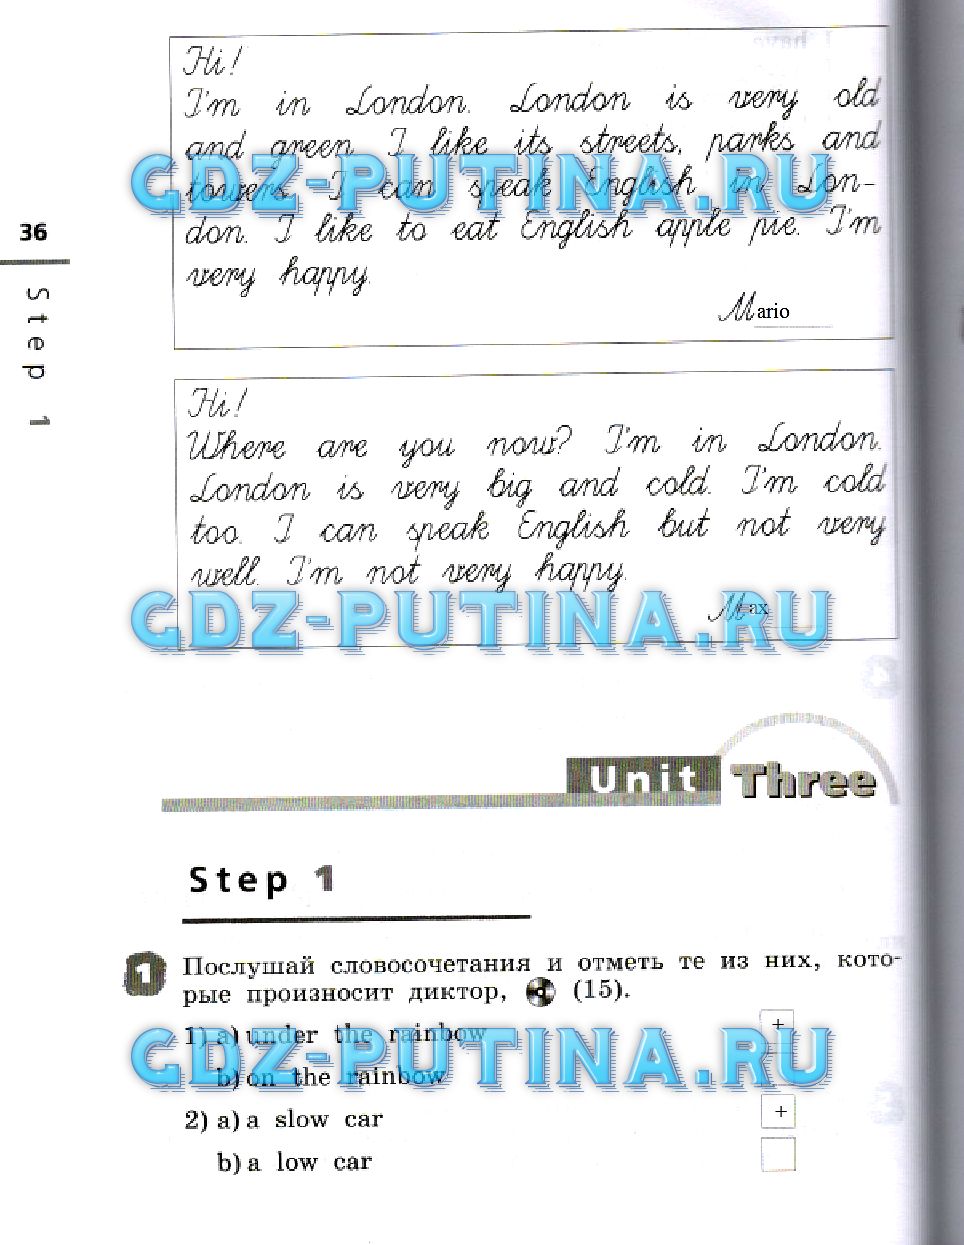 Hi!
I'm in London. London is very old
and green. I like its streets, parks and
towers. I can speak English in Lon-
GDZ-PUTINA.RU
don. I like to eat English apple pie. I'm
very happy.
Mario
36
Step 1
Hi!
Where are you now? I'm in London.
London is very big and cold. I'm cold
too. I can speak English but not very
well. I'm not very happy.
Max
GDZ-PUTINA.RU
Unit Three
Step 1
1 Послушай словосочетания и отметь те из них, кото-
рые произносит диктор, (15).
1) a) under the rainbow +
GDZ-PUTINA.RU
b) on the rainbow
2) a) a slow car +
b) a low car